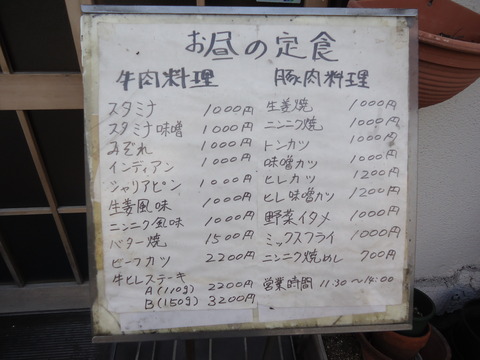 お昼の定食
牛肉料理
スタミナ 1000円
スタミナ味噌 1000円
みぞれ 1000円
インディアン 1000円
シャリアピン 1000円
生姜風味 1000円
ニンニク風味 1000円
バター焼 1500円
ビーフカツ 2200円
牛ヒレステーキ
A(110g) 2200円
B(150g) 3200円
豚肉料理
生姜焼 1000円
ニンニク焼 1000円
トンカツ 1000円
味噌カツ 1000円
ヒレカツ 1200円
ヒレ味噌カツ 1200円
野菜イタメ 1000円
ミックスフライ 1000円
ニンニク焼めし 700円
営業時間 11:30〜14:00